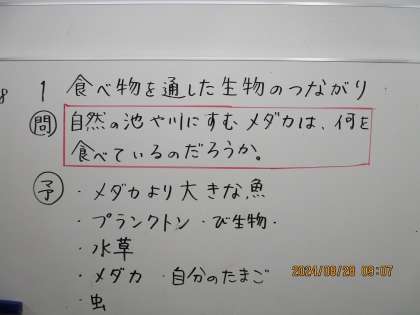 8
1 食べ物を通した生物のつながり
問 自然の池や川にすむメダカは、何を
食べているのだろうか。
予 ・メダカより大きな魚
・プランクトン ・び生物・
・水草
・メダカ ・自分のたまご
2024/08/28 09:07
・虫